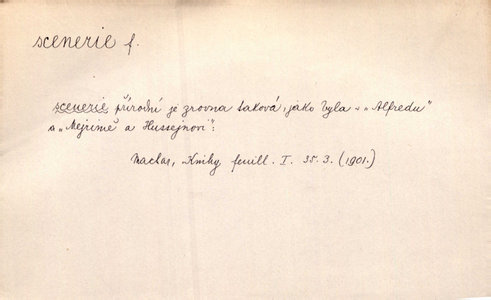 scenerie f.
scenerie přírodní je zrovna taková, jako byla v „Alfredu“
a „Mejrimě a Hussejnovi“:
Machar, Knihy feuill. I. 35. 3. (1901.)